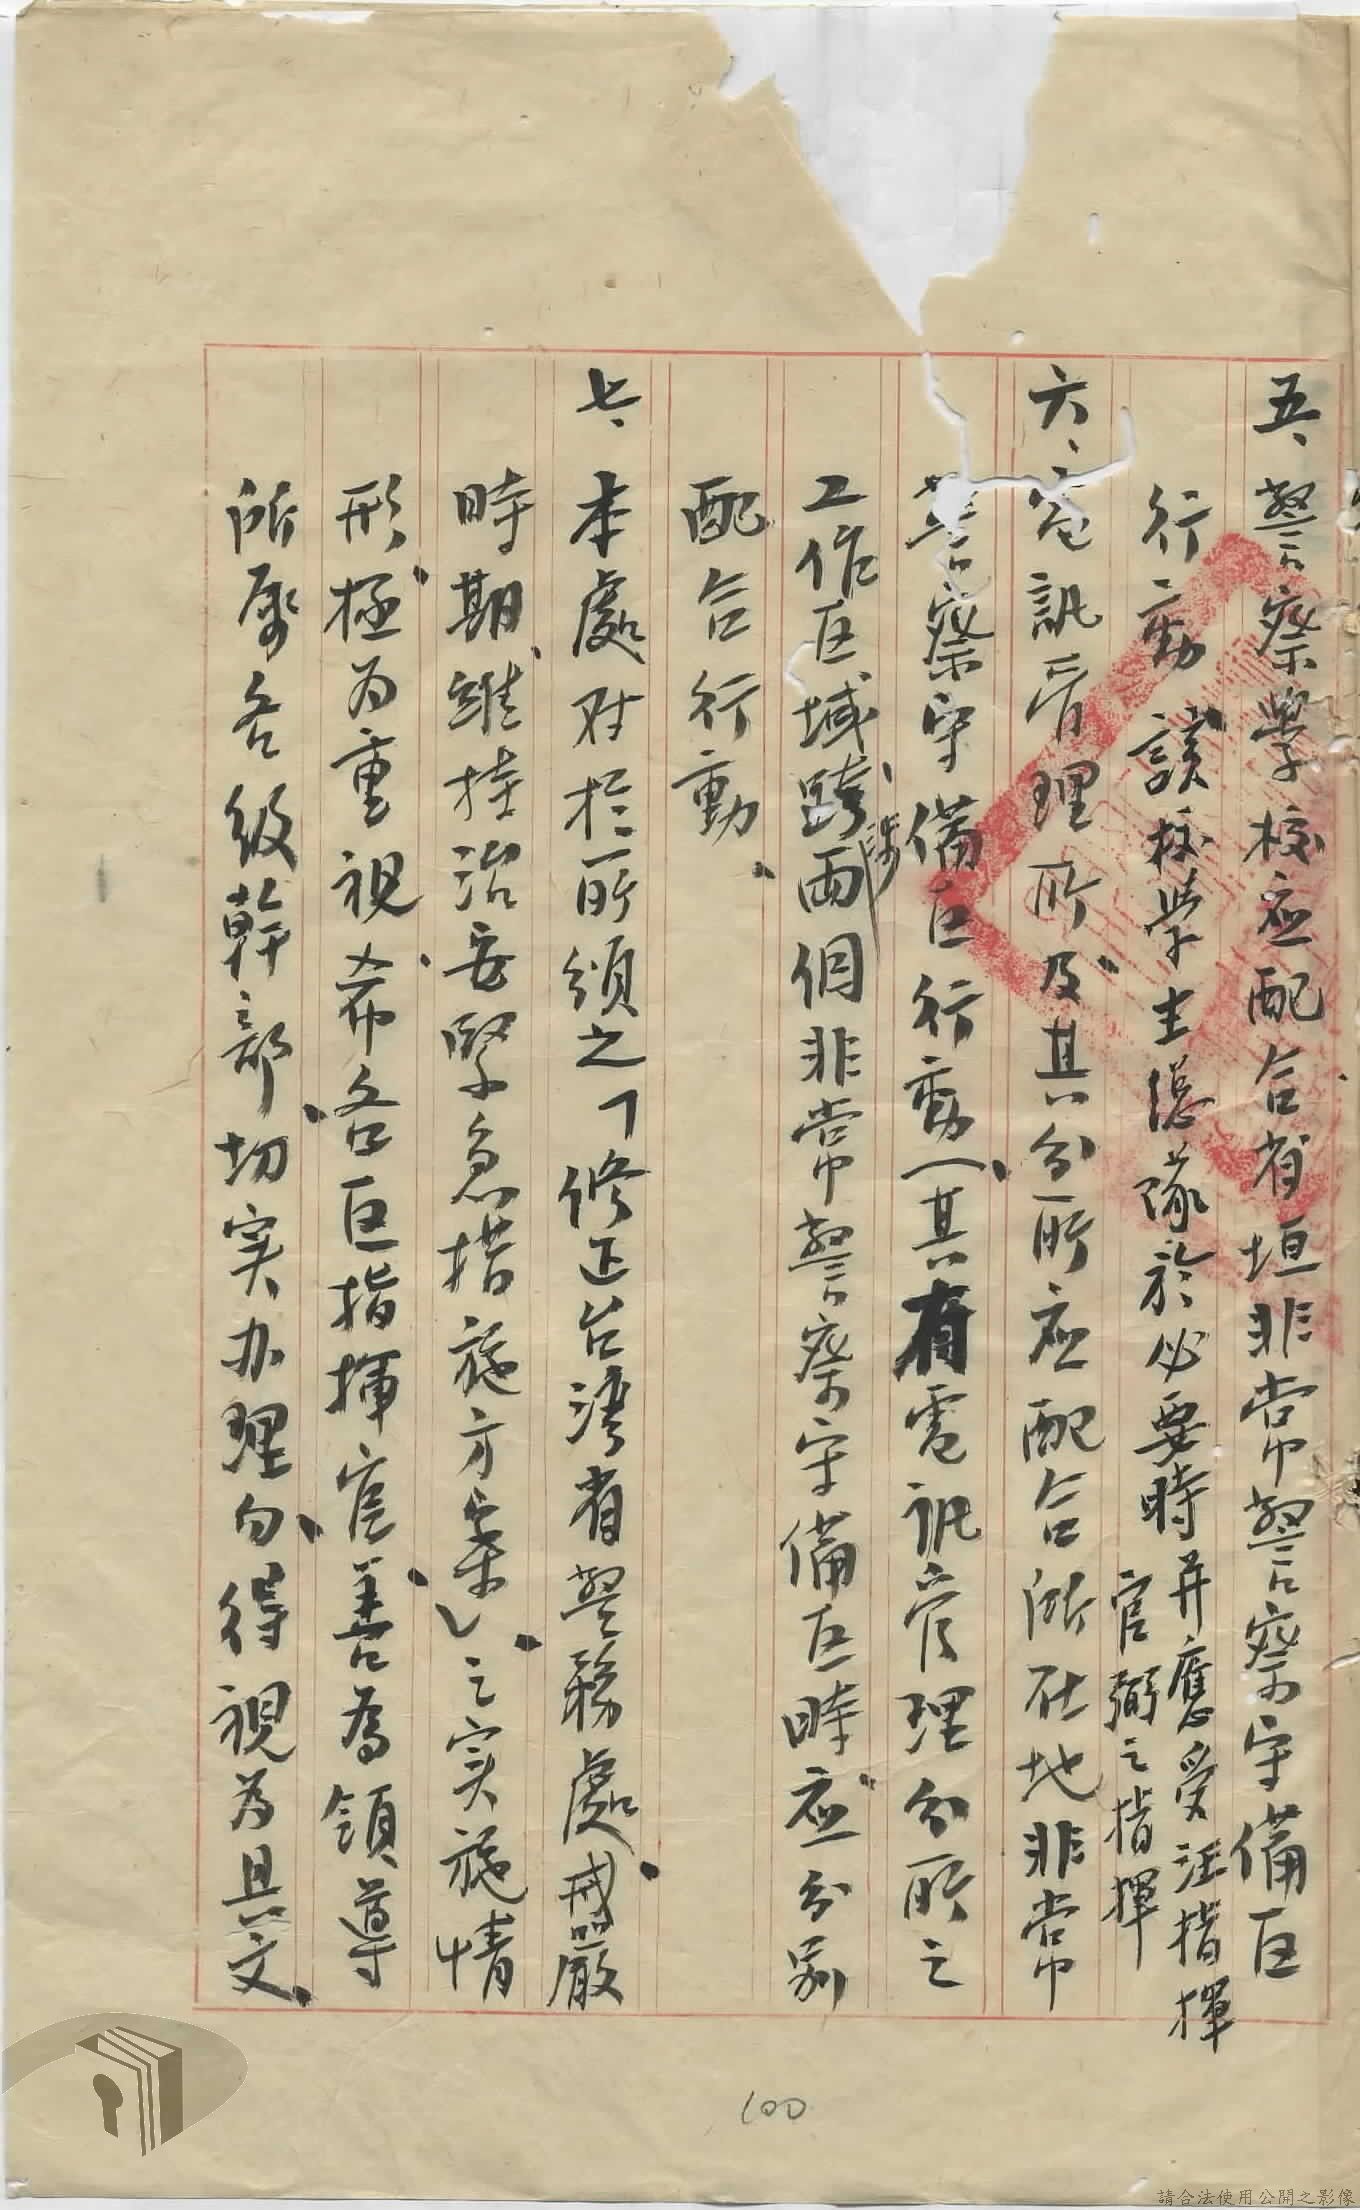 五、警察學校应配合省垣非常警察守備区
行動該校學生總隊於必要時并應受汪指揮
官弼之指揮
六、電訊管理所及其分所应配合所在地非常
警察守備区行動、(其有電訊管理分所之
工作区域跨涉兩個非常警察守備区時应分別
配合行動、
七、本處对於所頒之「修正台湾省警務處戒嚴
時期維持治安緊急措施方案」之实施情
形極为重視希各区指揮官善為領導
所屬各級幹部切实办理勿得視为具文、
100
請合法使用公開之影像